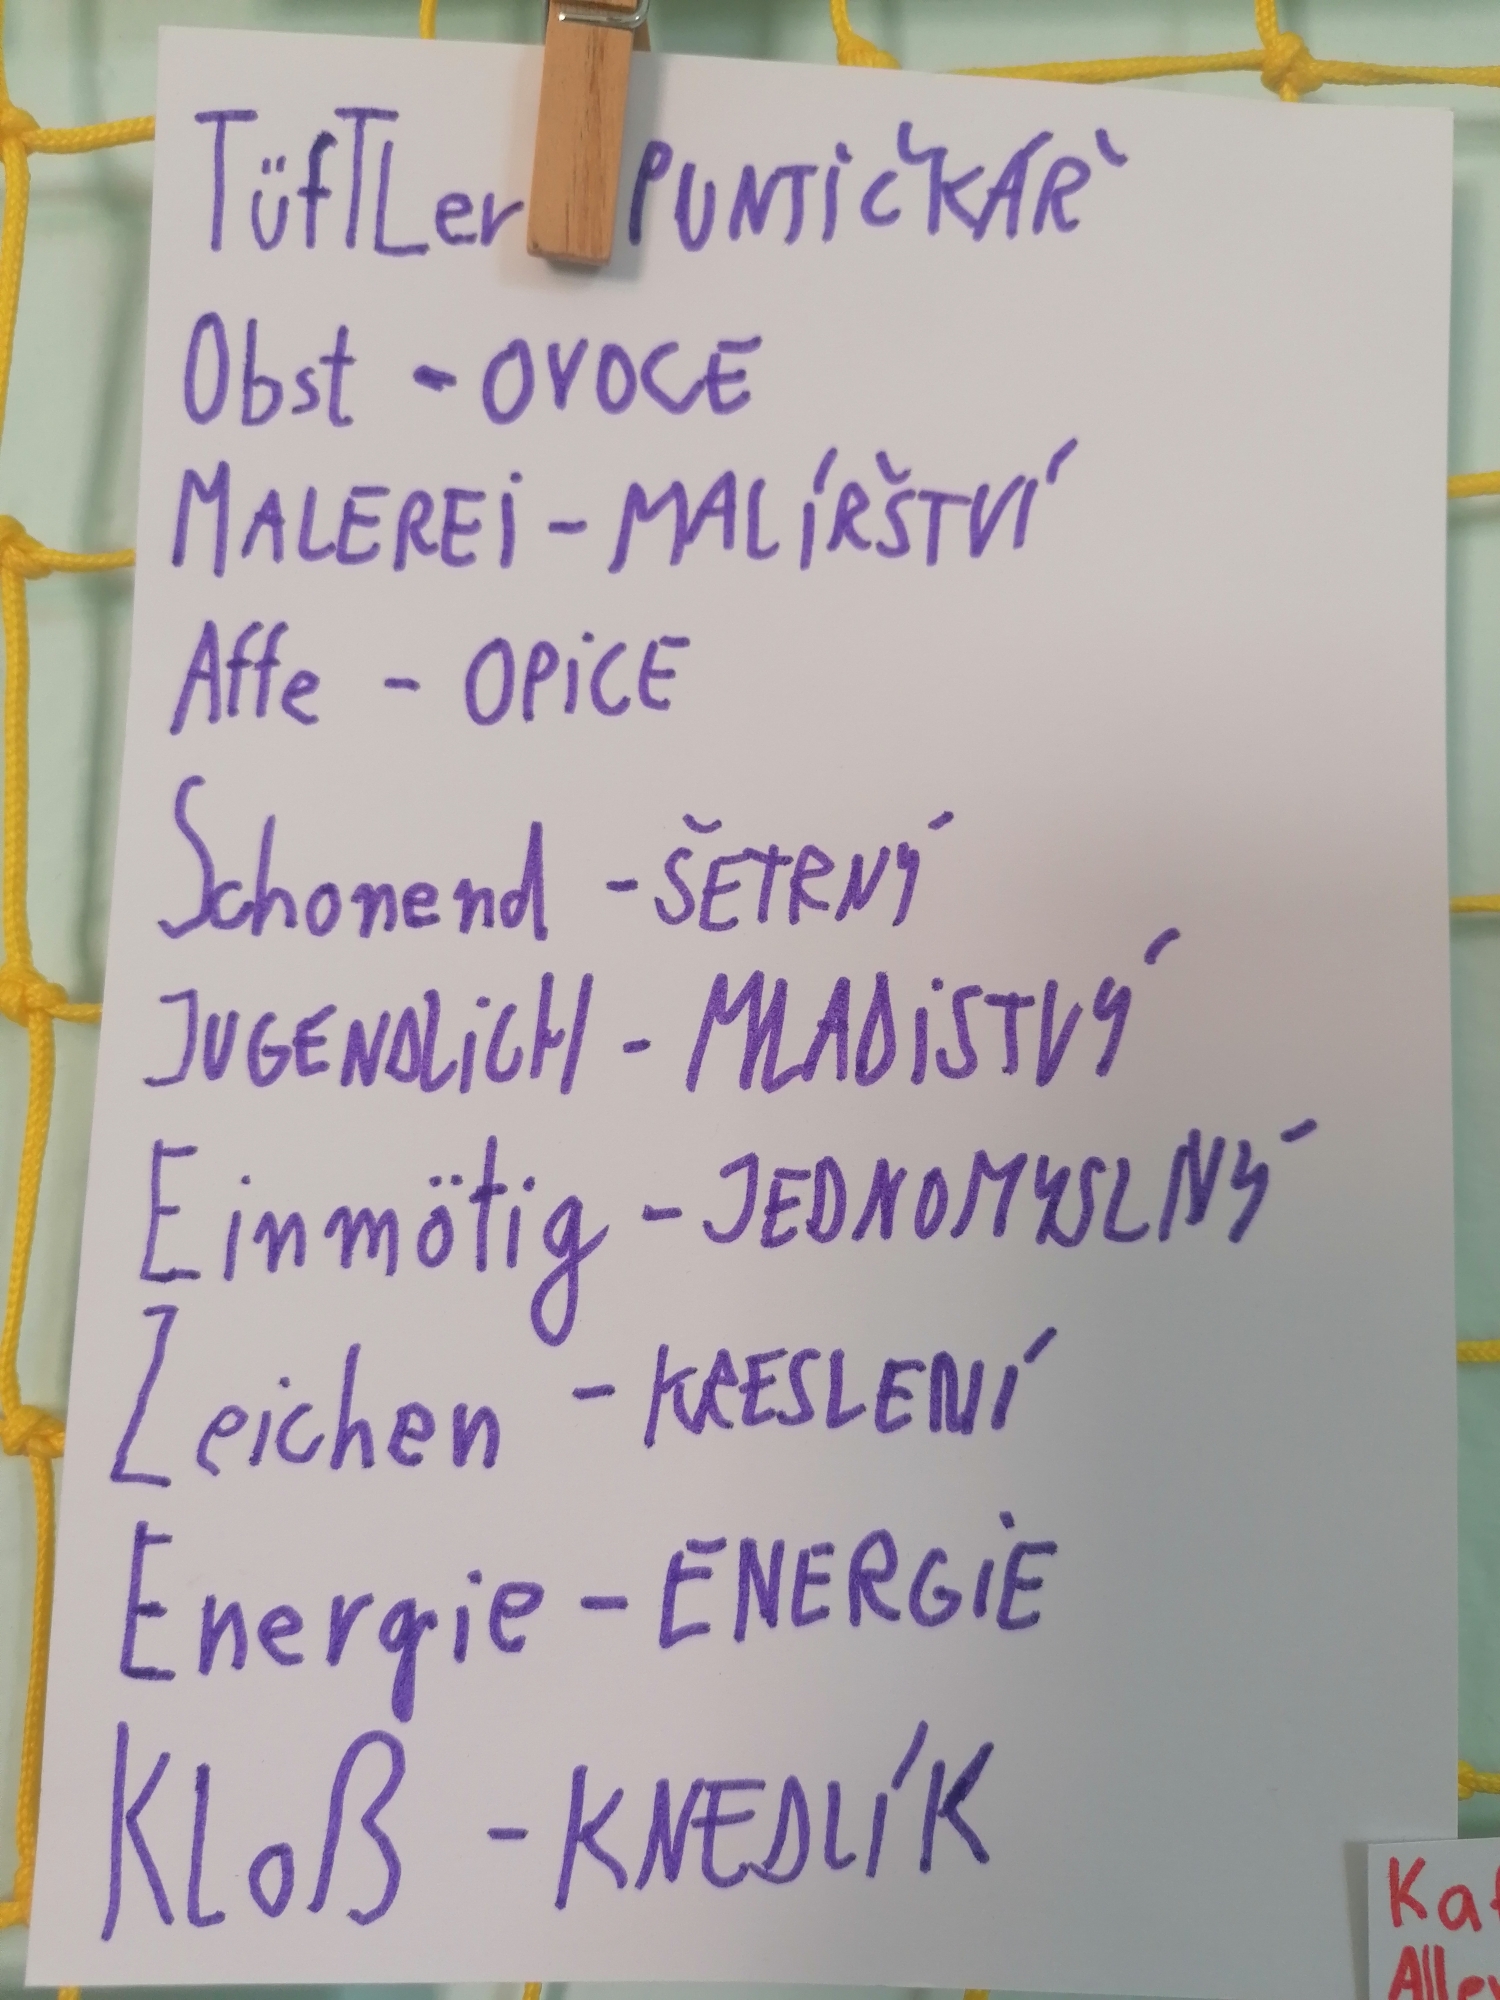 TüfTLer PUNTiČKÁŘ
Obst - OVOCE
MALEREi - MALÍRŠTVÍ
Affe - OPiCE
Schonend - ŠETRNÝ
JUGENDLiCH - MLADiSTVÝ
Einmötig - JEDNOMYSLNÝ
Zeichen - KRESLENÍ
Energie - ENERGiE
KLoß - KNEDLÍK